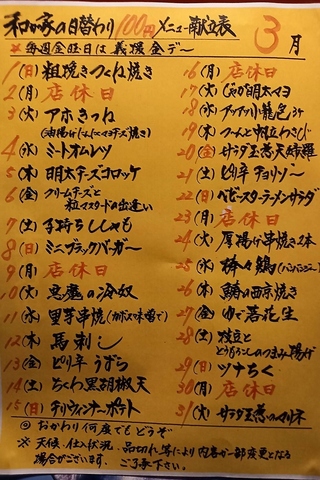 和か家の日替わり 100円メニュー献立表
3月
※毎週金曜日は義援金デー
1(日) 粗挽きつくね焼き
2(月) 店休日
3(火) アホきつね
(油揚げにんにくマヨチーズ焼き)
4(水) ミートオムレツ
5(木) 明太チーズコロッケ
6(金) クリームチーズと
粒マスタードの出逢い
7(土) 子持ちししゃも
8(日) ミニブラックバーガー
9(月) 店休日
10(火) 悪魔の冷奴
11(水) 里芋串焼(カボス味噌で)
12(木) 馬刺し
13(金) ピリ辛うずら
14(土) ちくわ黒胡椒天
15(日) テリウィンナーポテト
16(月) 店休日
17(火) じゃが明太マヨ
18(水) アツアツ小籠包3ヶ
19(木) つーんと帆立わさび
20(金) サラダ玉葱天婦羅
21(土) ピリ辛チョリソー
22(日) ベビースターラーメンサラダ
23(月) 店休日
24(火) 厚揚げ串焼き2本
25(水) 棒々鶏(バンバンジー)
26(木) 鯖の西京焼き
27(金) ゆで落花生
28(土) 枝豆と
とうもろこしのつまみ揚げ
29(日) ツナちく
30(月) 店休日
31(火) サラダ玉葱のマリネ
◎おかわり何度でもどうぞ
※天候、仕入状況、品切れ等により内容が一部変更となる
場合がございます、ご了承下さい。